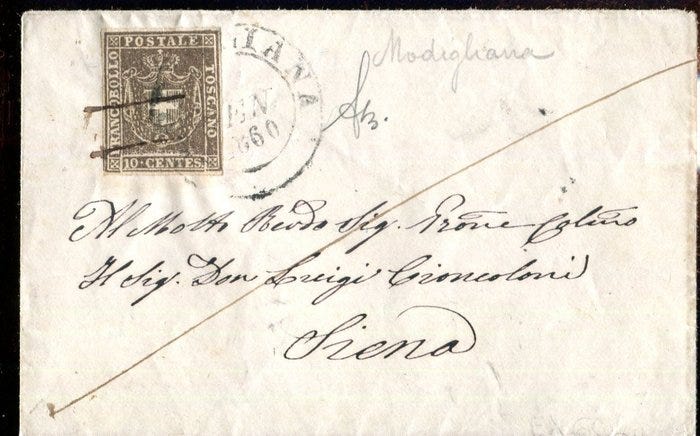 FRANCOBOLLO POSTALE TOSCANO
10 CENTES
LIANA
EN.
1860
Modigliana
Al Molto Revdo Sig.
Il Sig. Don Luigi Cioncoloni
Siena